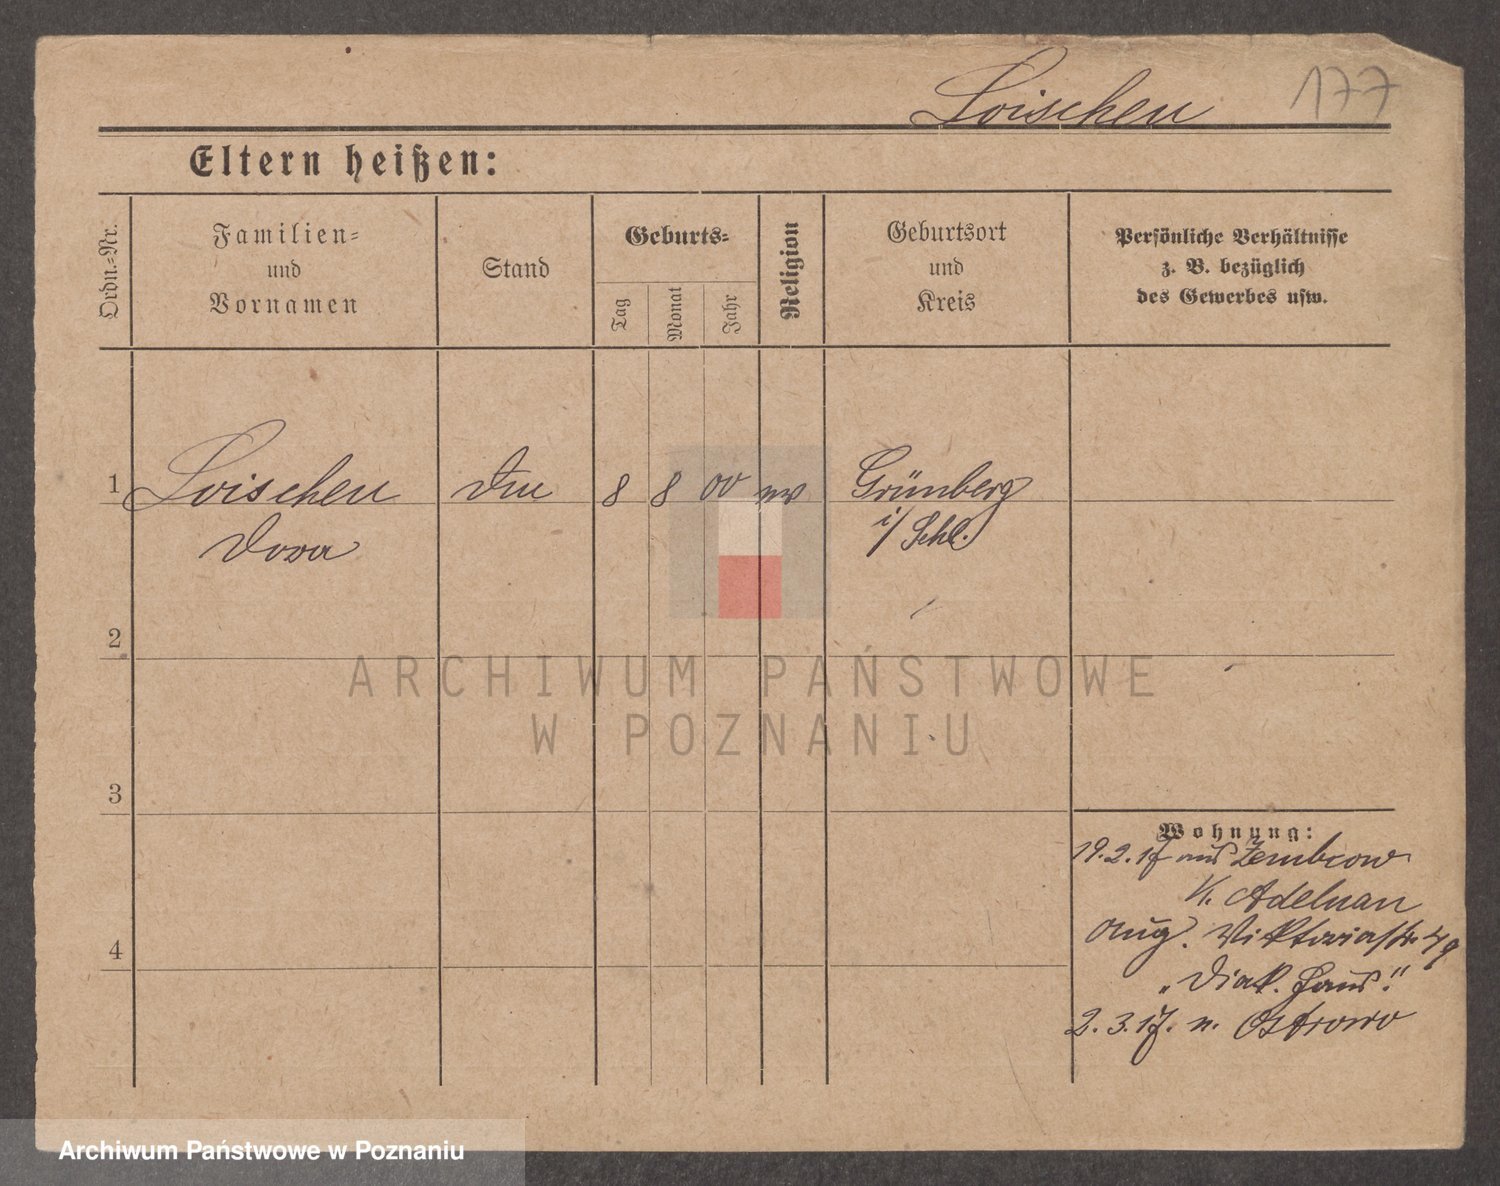 Loischen 177
Eltern heißen:
Ordn.=Nr.
Familien=
und
Vornamen
Stand
Geburts=
Tag
Monat
Jahr
Religion
Geburtsort
und
Kreis
Persönliche Verhältnisse
z. B. bezüglich
des Gewerbes usw.
1 Loischen 8 8 00 ev Grünberg
Dora i/ Schl.
2
ARCHIWUM PAŃSTWOWE
W POZNANIU
3
Wohnung:
19.2.17 aus Zembcow
K. Adelnau
Aug. Viktoriastr. 49
4
"Diak. Haus".
2.3.17. n. Ostrowo
Archiwum Państwowe w Poznaniu